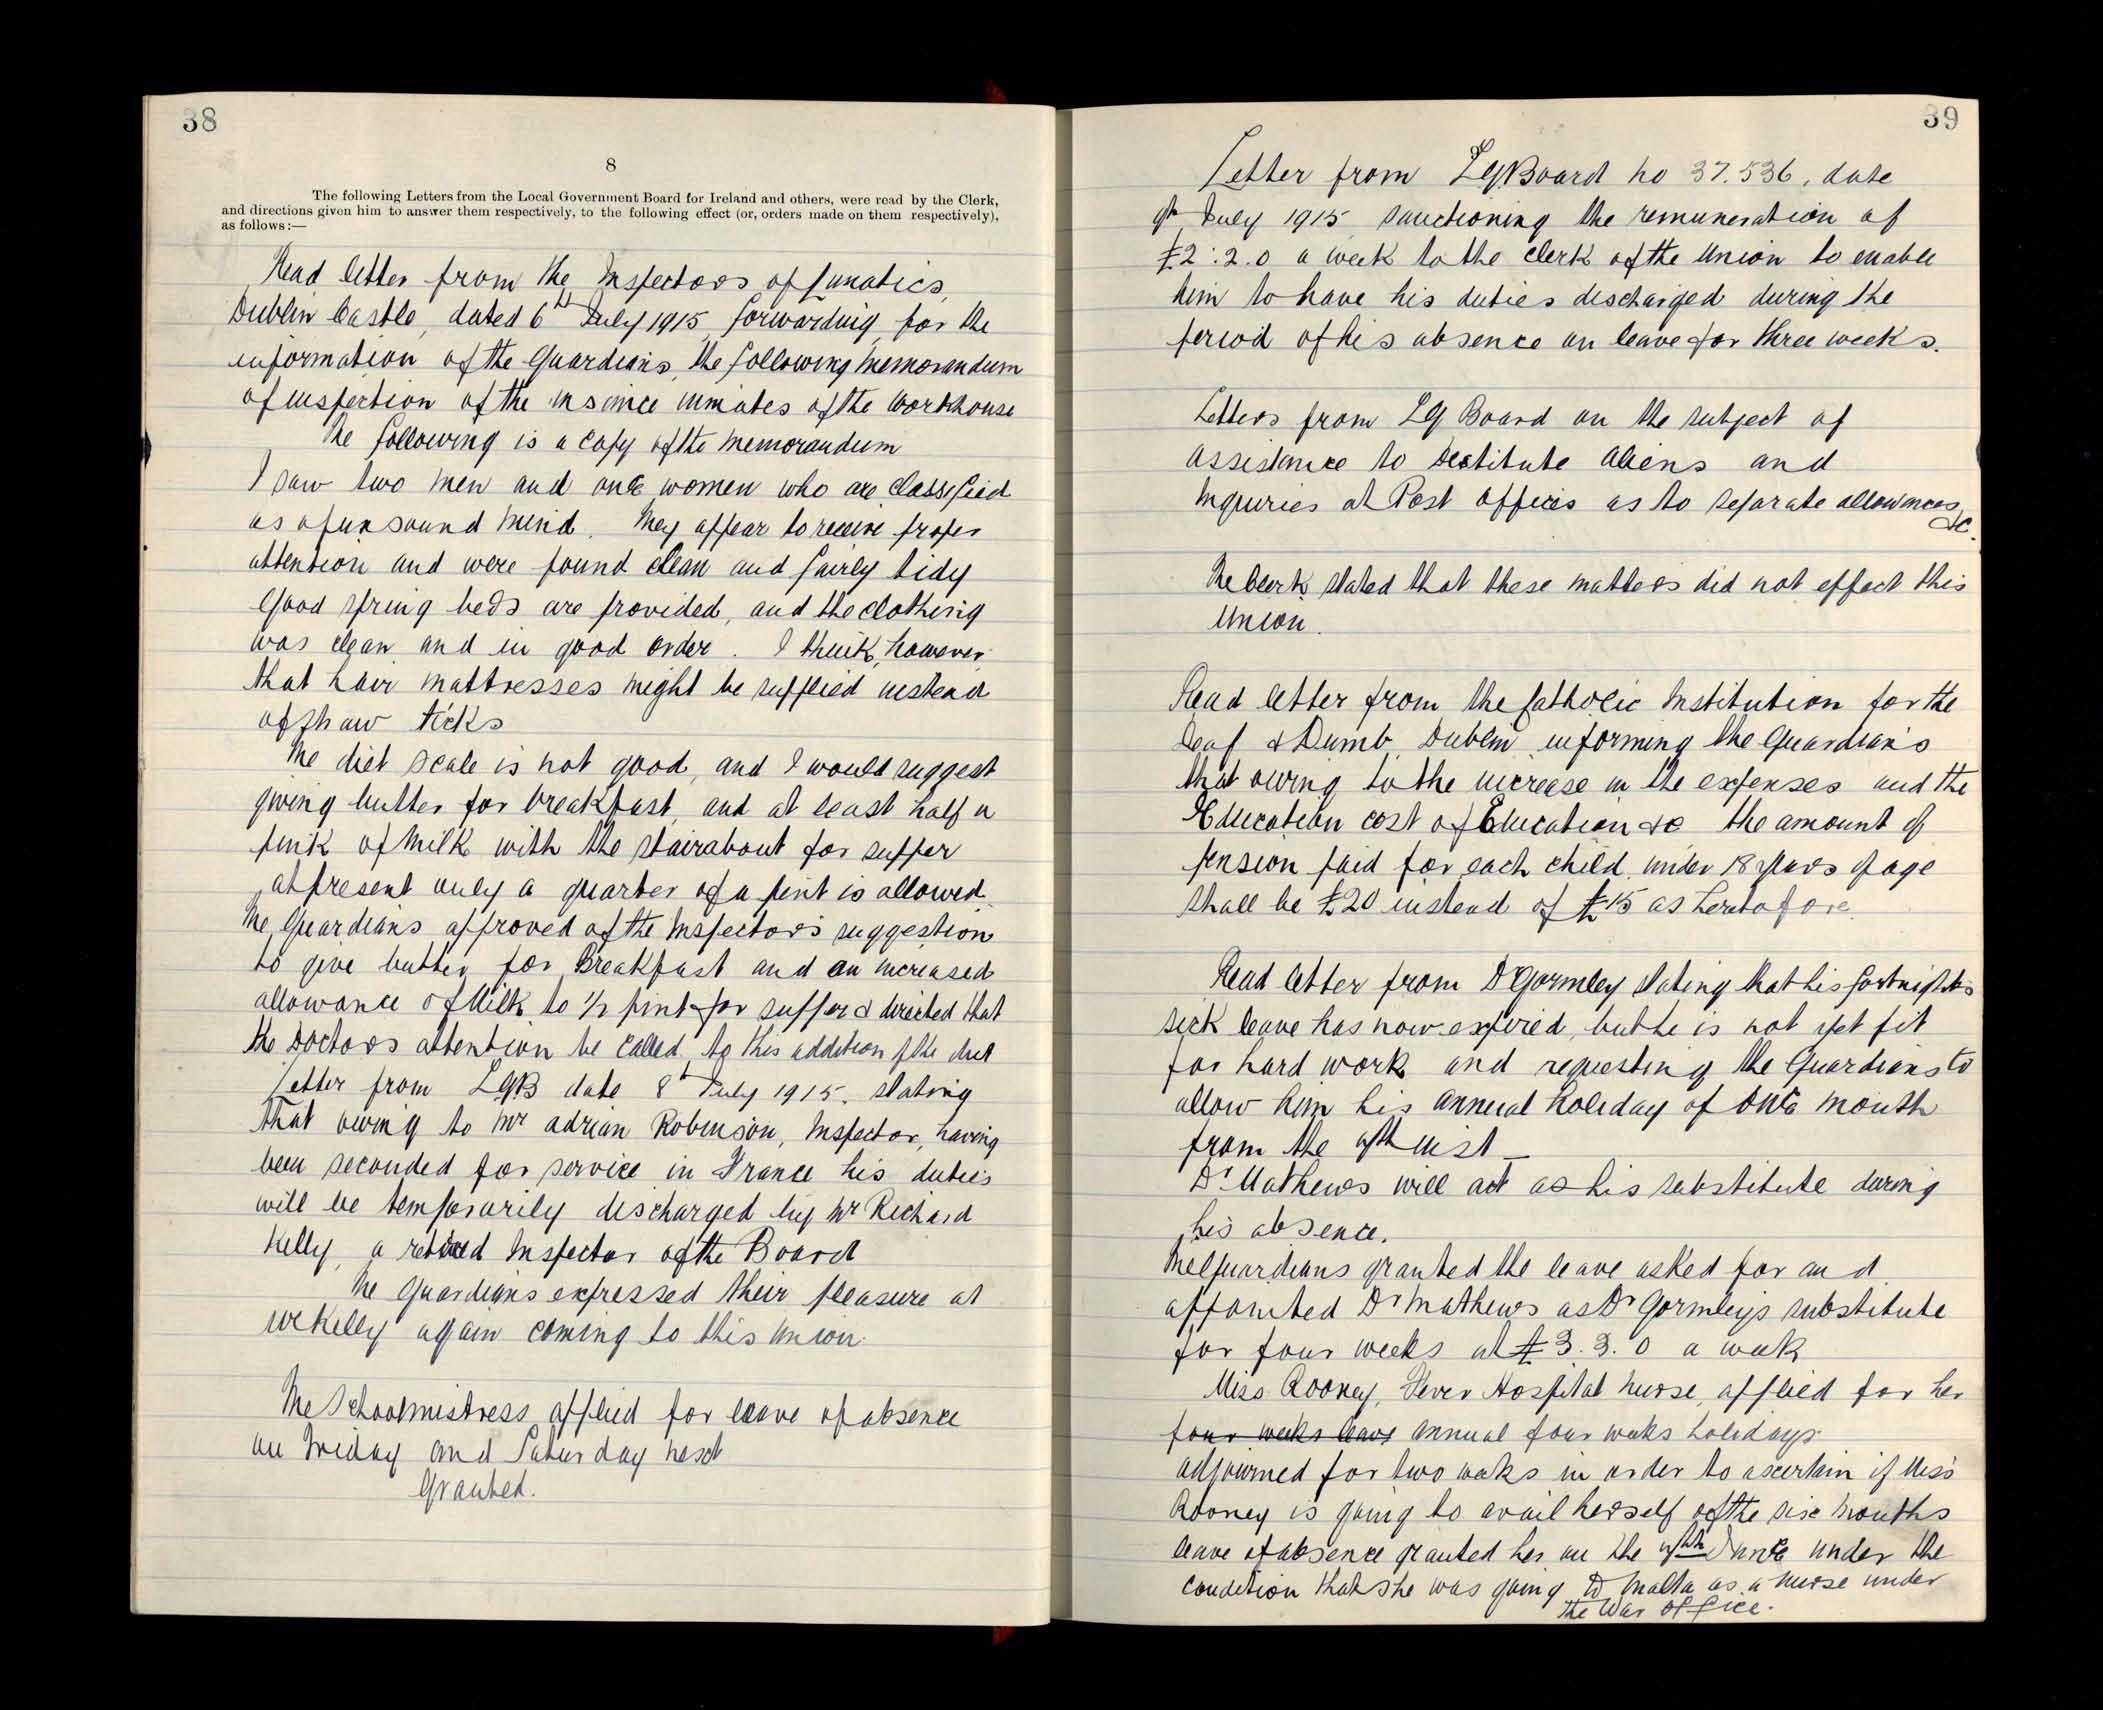 38
8
The following Letters from the Local Government Board for Ireland and others, were read by the Clerk,
and directions given him to answer them respectively, to the following effect (or, orders made on them respectively),
as follows:—
Read letter from the Inspectors of Lunatics,
Dublin Castle, dated 6th July 1915, forwarding, for the
information of the Guardians, the following memorandum
of inspection of the insane inmates of the Workhouse
The following is a copy of the memorandum
I saw two men and one women who are classified
as of unsound mind. They appear to receive proper
attention and were found clean and fairly tidy
Good spring beds are provided, and the clothing
was clean and in good order. I think, however
that hair mattresses might be supplied instead
of straw ticks
The diet scale is not good, and I would suggest
giving butter for breakfast, and at least half a
pink of milk with the stairabout for supper
at present only a quarter of a pint is allowed.
The Guardians approved of the Inspectors suggestion
to give butter for Breakfast and an increased
allowance of Milk to 1/2 pint for supper & directed that
the Doctors attention be called to this addition of the diet
Letter from LGB date 8th July 1915. stating
that owing to Mr Adrian Robinson, Inspector, having
been seconded for service in France his duties
will be temporarily discharged by Mr Richard
Kelly, a retired Inspector of the Board
The Guardians expressed their pleasure at
Mr Kelly again coming to this Union.
The Schoolmistress applied for leave of absence
on Friday and Saturday next
Granted.
39
Letter from LGBoard no 37.536, date
9th July 1915 sanctioning the remuneration of
£2:2.0 a week to the clerk of the Union to enable
him to have his duties discharged during the
period of his absence on leave for three weeks.
Letters from LG Board on the subject of
assistance to destitute aliens and
Inquiries at Post offices as to separate allowances
&c.
The Clerk stated that these matters did not effect this
Union.
Read letter from the Catholic Institution for the
Deaf & Dumb, Dublin informing the Guardians
that owing to the increase in the expenses and the
Education cost of Education &c the amount of
pension paid for each child under 18 years of age
shall be £20 instead of £15 as heretofore.
Read letter from Dr Gormley stating that his fortnights
sick leave has now expired, but he is not yet fit
for hard work and requesting the Guardians to
allow him his annual holiday of one month
from the inst
Dr Mathews will act as his substitute during
his absence.
The Guardians granted the leave asked for and
appointed Dr Mathews as Dr Gormleys substitute
for four weeks at £3.3.0 a week
Miss Rooney, Fever Hospital nurse, applied for her
four weeks leave annual four weeks holidays.
adjourned for two weeks in order to ascertain if Miss
Rooney is going to avail herself of the six months
leave of absence granted her on the June under the
condition that she was going to Malta as a nurse under
the War Office.